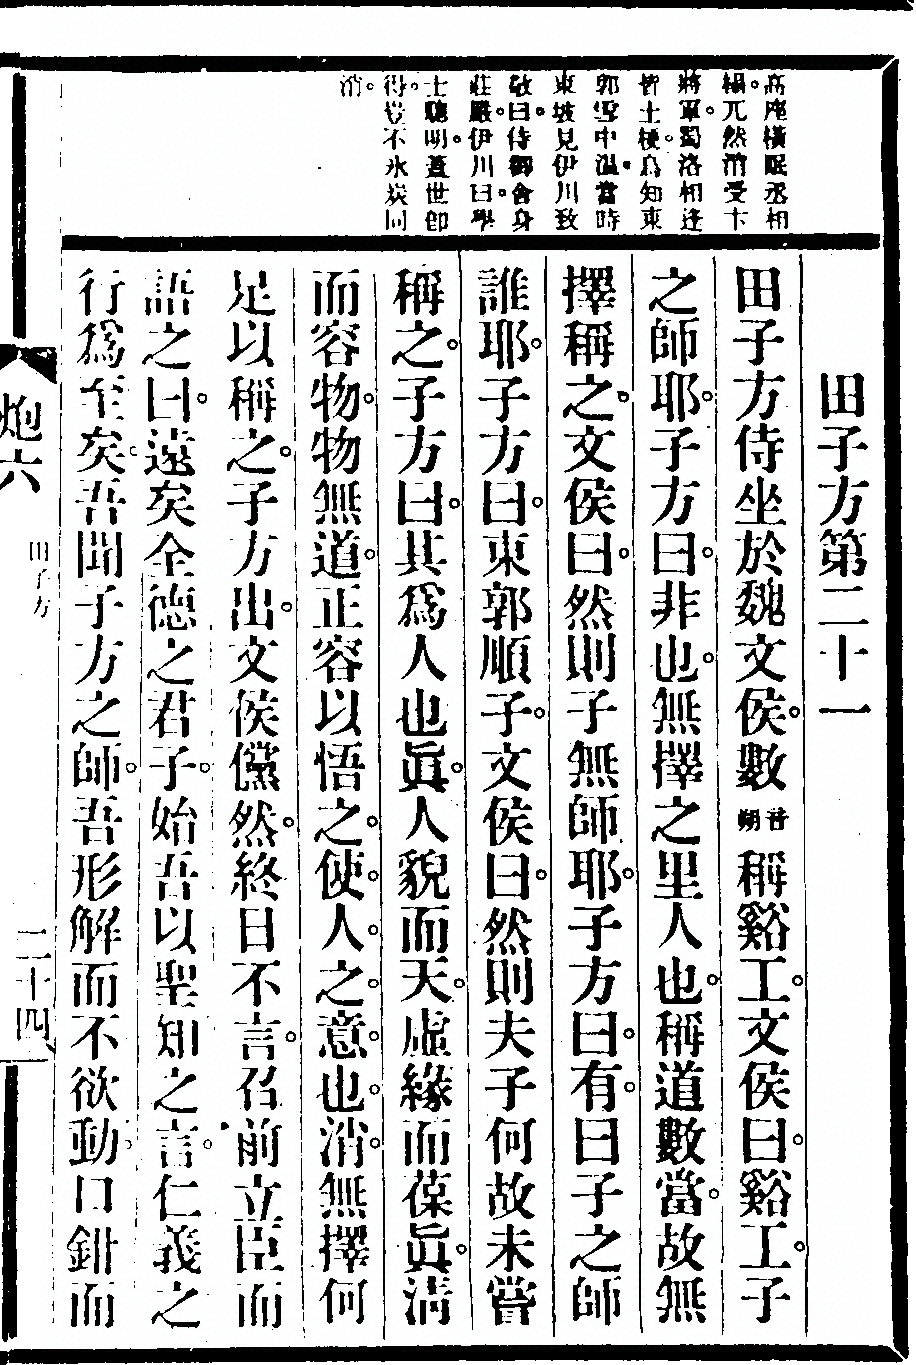 高座橫眠丞相
榻兀然消受卞
將軍蜀洛相逢
皆土梗爲知東
郭雪中溫當時
東坡見伊川致
敬曰侍御舍身
莊嚴伊川曰學
士聰明蓋世卽
得豈不氷炭同
消
田子方第二十一
田子方侍坐於魏文侯數音朔稱谿工文侯曰谿工子
之師耶子方曰非也無擇之里人也稱道數當故無
擇稱之文侯曰然則子無師耶子方曰有曰子之師
誰耶子方曰東郭順子文侯曰然則夫子何故未嘗
稱之子方曰其爲人也眞人貌而天虛緣而葆眞淸
而容物物無道正容以悟之使人之意也消無擇何
足以稱之子方出文侯儻然終日不言召前立臣而
語之曰遠矣全德之君子始吾以聖知之言仁義之
行爲至矣吾聞子方之師吾形解而不欲動口鉗而
炮六
田子方
二十四